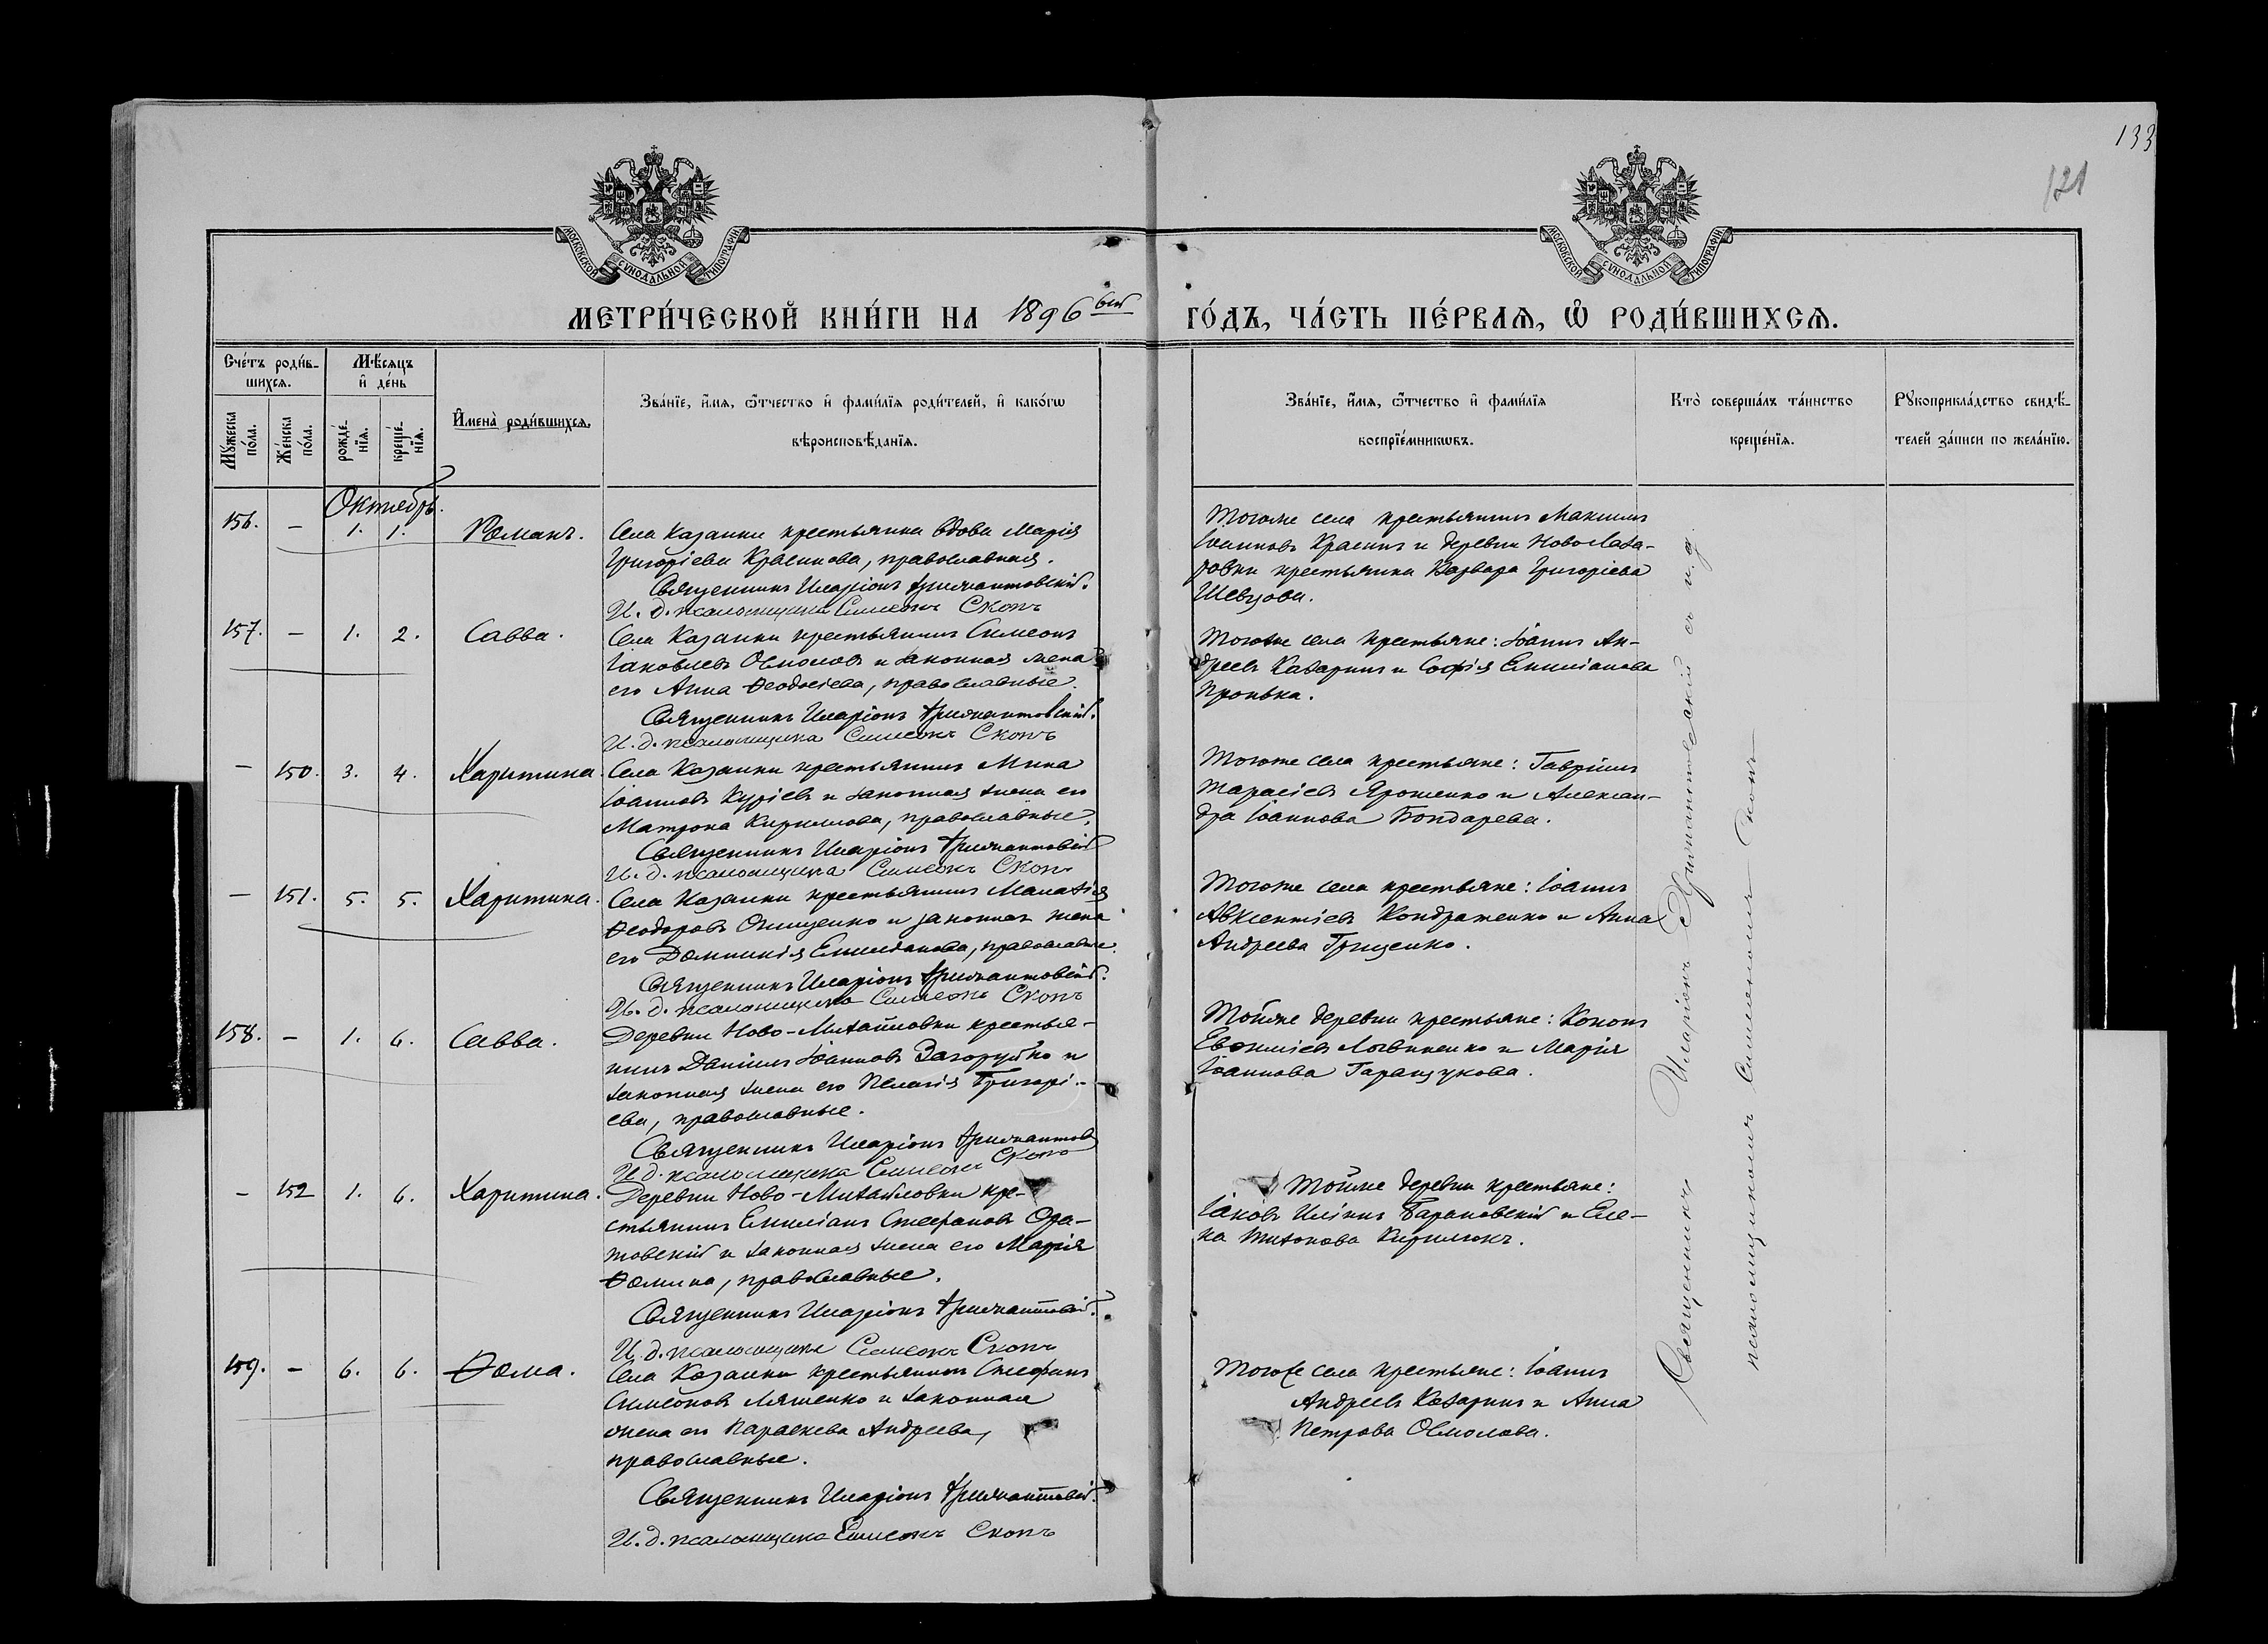 133
121
МОСКОВСКОЙ СѴНОДАЛЬНОЙ ТИПОГРАФІИ
МОСКОВСКОЙ СѴНОДАЛЬНОЙ ТИПОГРАФІИ
МЕТРИ́ЧЕСКОЙ КНИ́ГИ НА 1896 ГО́ДЪ, ЧА́СТЬ ПЕ́РВАѦ, Ѽ РОДИ́ВШИХСѦ.
Сче́тъ роди́в-
шихсѧ.
Мѣ́сѧцъ
и҆ де́нь
Мꙋ́жеска
по́ла.
Же́нска
по́ла.
рожде́-
нїѧ.
креще́-
нїѧ.
И҆мена̀ роди́вшихсѧ.
Зва́нїе, и҆́мѧ, ѻ҆́тчество и҆ фами́лїѧ роди́телей, и҆ како́гѡ
вѣроисповѣ́данїѧ.
Зва́нїе, и҆́мѧ, ѻ҆́тчество и҆ фами́лїѧ
воспрїе́мникѡвъ.
Кто̀ соверша́лъ та́инство
креще́нїѧ.
Рꙋкоприкла́дство свидѣ́-
телей за́писи по жела́нїю.
Октябрь.
156. – 1. 1. Романъ.
Села Казанки крестьянка вдова Марія
Григоріева Красикова, православная.
Священникъ Иларіонъ
И. д. псаломщика Симеонъ Скопъ
Тогоже села крестьянинъ Максимъ
Іоанновъ Красинъ и деревни Новолаза-
ровки крестьянка Варвара Григоріева
Шевцова.
157. – 1. 2. Савва.
Села Казанки крестьянинъ Симеонъ
Іаковлевъ Осмоловъ и законная жена
его Анна Ѳеодосіева, православные.
Священникъ Иларіонъ
И. д. псаломщика Симеонъ Скопъ
Тогоже села крестьяне: Іоаннъ Ан-
дреевъ Казаринъ и Софія Емиліанова
Пронька.
– 150. 3. 4. Харитина.
Села Казанки крестьянинъ Мина
Іоанновъ Куріевъ и законная жена его
Матрона Кириллова, православные.
Священникъ Иларіонъ
И. д. псаломщика Симеонъ Скопъ
Тогоже села крестьяне: Гавріилъ
Тарасіевъ Ярошенко и Алексан-
дра Іоаннова Бондарева.
– 151. 5. 5. Харитина.
Села Казанки крестьянинъ
Ѳеодоровъ Онищенко и законная жена
его Домникія Емиліанова, православные.
Священникъ Иларіонъ
И. д. псаломщика Симеонъ Скопъ
Тогоже села крестьяне: Іоаннъ
Авксентіевъ Кондратенко и Анна
Андреева Грищенко.
158. – 1. 6. Савва.
Деревни Ново-Михайловки крестья-
нинъ Даніилъ Іоанновъ Загоруйко и
законная жена его Пелагія Григорі-
ева, православные.
Священникъ Иларіонъ
И. д. псаломщика Симеонъ Скопъ
Тойже деревни крестьяне: Кононъ
Евѳиміевъ Логвиненко и Марія
Іоаннова Геращукова.
– 152 1. 6. Харитина.
Деревни Ново-Михайловки кре-
стьянинъ Емиліанъ Стефановъ
и законная жена его Марія
Ѳомина, православные.
Священникъ Иларіонъ
И. д. псаломщика Симеонъ Скопъ
Тойже деревни крестьяне:
Іаковъ Иліинъ Барановскій и Еле-
на Титокова Кирилюкъ.
159. – 6. 6. Ѳома.
Села Казанки крестьянинъ Стефанъ
Симеоновъ Ляшенко и законная
жена его Параскева Андреева,
православные.
Священникъ Иларіонъ
И. д. псаломщика Симеонъ Скопъ
Тогоже села крестьяне: Іоаннъ
Андреевъ Казаринъ и Анна
Петрова Осмолова.
Священникъ Иларіонъ съ и. д.
псаломщикомъ Симеономъ Скопъ